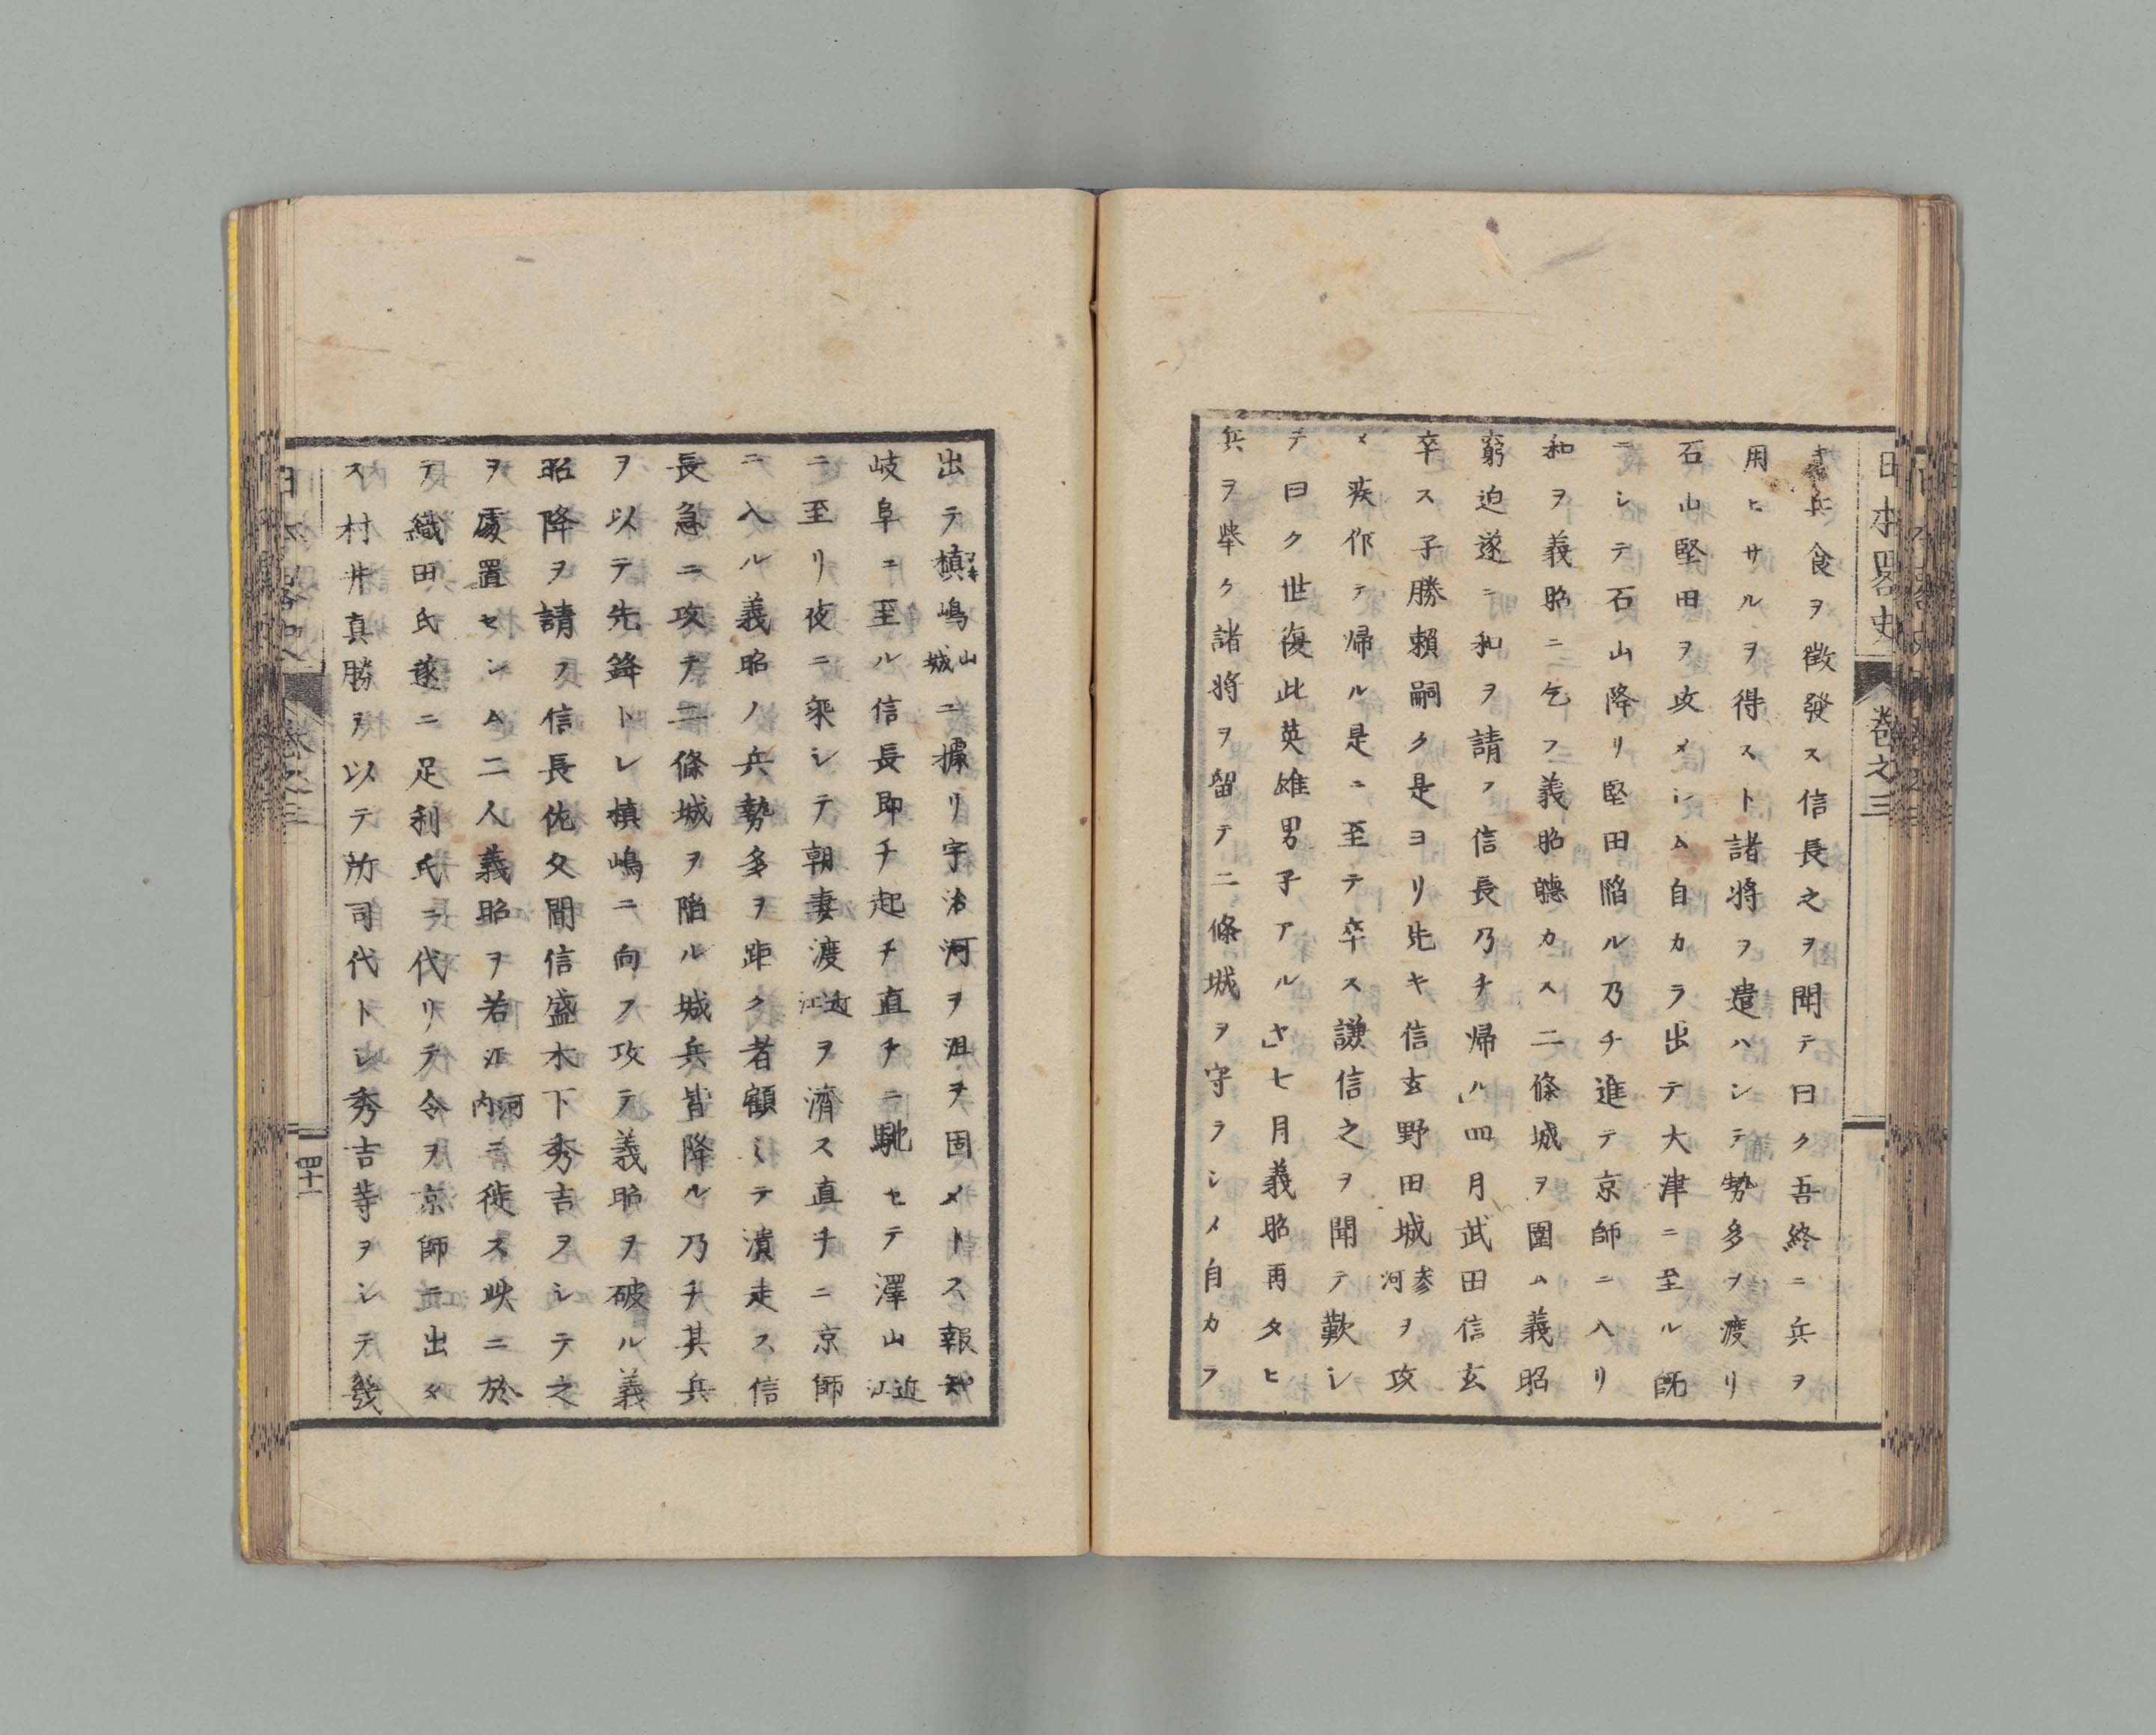 日本畧史 卷之三
兵食ヲ徴發ス信長之ヲ聞テ曰ク吾終ニ兵ヲ
用ヒサルヲ得スト諸将ヲ遣ハシテ勢多ヲ渡リ
石山堅田ヲ攻メシム自カラ出テ大津ニ至ル既
ニシテ石山降リ堅田陥ル乃チ進テ京師ニ入リ
和ヲ義昭ニ乞フ義昭聴カス二條城ヲ圍ム義昭
窮迫遂ニ和ヲ請フ信長乃チ帰ル」四月武田信玄
卒ス子勝頼嗣ク是ヨリ先キ信玄野田城参河ヲ攻
メ疾作テ帰ル是ニ至テ卒ス謙信之ヲ聞テ歎シ
テ曰ク世復此英雄男子アルヤ」七月義昭再タヒ
兵ヲ挙ク諸将ヲ留テ二條城ヲ守ラシメ自カラ
出テ槙マキ嶋山城ニ據リ宇治河ヲ沮ヲ固メトス報知
岐阜ニ至ル信長即チ起チ直チニ馳セテ澤山近江
ニ至リ夜ニ乗シテ朝妻渡近江ヲ濟ス直チニ京師
ニ入ル義昭ノ兵勢多ヲ距ク者顧ミテ潰走ス信
長急ニ攻テ二條城ヲ陥ル城兵皆降ル乃チ其兵
ヲ以テ先鋒トレ槙嶋ニ向フ攻テ義昭ヲ破ル義
昭降ヲ請フ信長佐久間信盛木下秀吉ヲシテ之
ヲ處置セシム二人義昭ヲ若江河内ニ徙ス此ニ於
テ織田氏遂ニ足利氏ニ代リテ令ヲ京師ニ出タ
ス村井真勝ヲ以テ所司代トシ秀吉等ヲシテ畿
日本畧史 卷之三 四十一